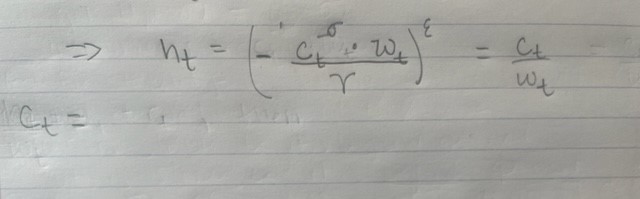 ⇒ n_t = (- c_t^{-σ} · w_t / γ)^ε = c_t / w_t
c_t =